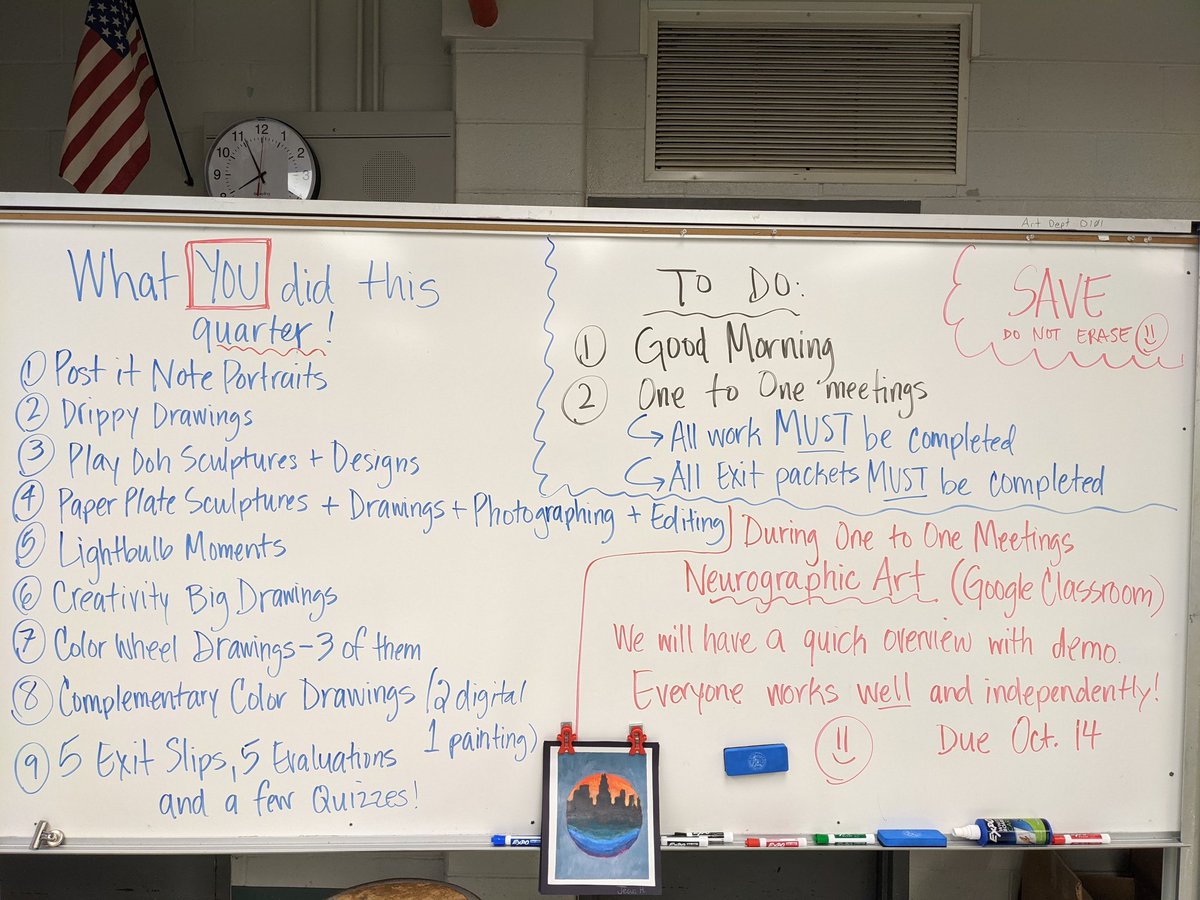 What YOU did this
quarter!
1 Post it Note Portraits
2 Drippy Drawings
3 Play Doh Sculptures + Designs
4 Paper Plate Sculptures + Drawings + Photographing + Editing
5 Lightbulb Moments
6 Creativity Big Drawings
7 Color Wheel Drawings - 3 of them
8 Complementary Color Drawings (2 digital
1 painting)
9 5 Exit Slips, 5 Evaluations
and a few Quizzes!
TO DO:
1 Good Morning
2 One to One meetings
↳ All work MUST be completed
↳ All Exit packets MUST be completed
SAVE
DO NOT ERASE
During One to One Meetings
Neurographic Art (Google Classroom)
We will have a quick overview with demo.
Everyone works well and independently!
Due Oct. 14
Art Dept
11 12 1
10 2
9 3
8
EXPO
EXPO
EXPO
EXPO
EXPO